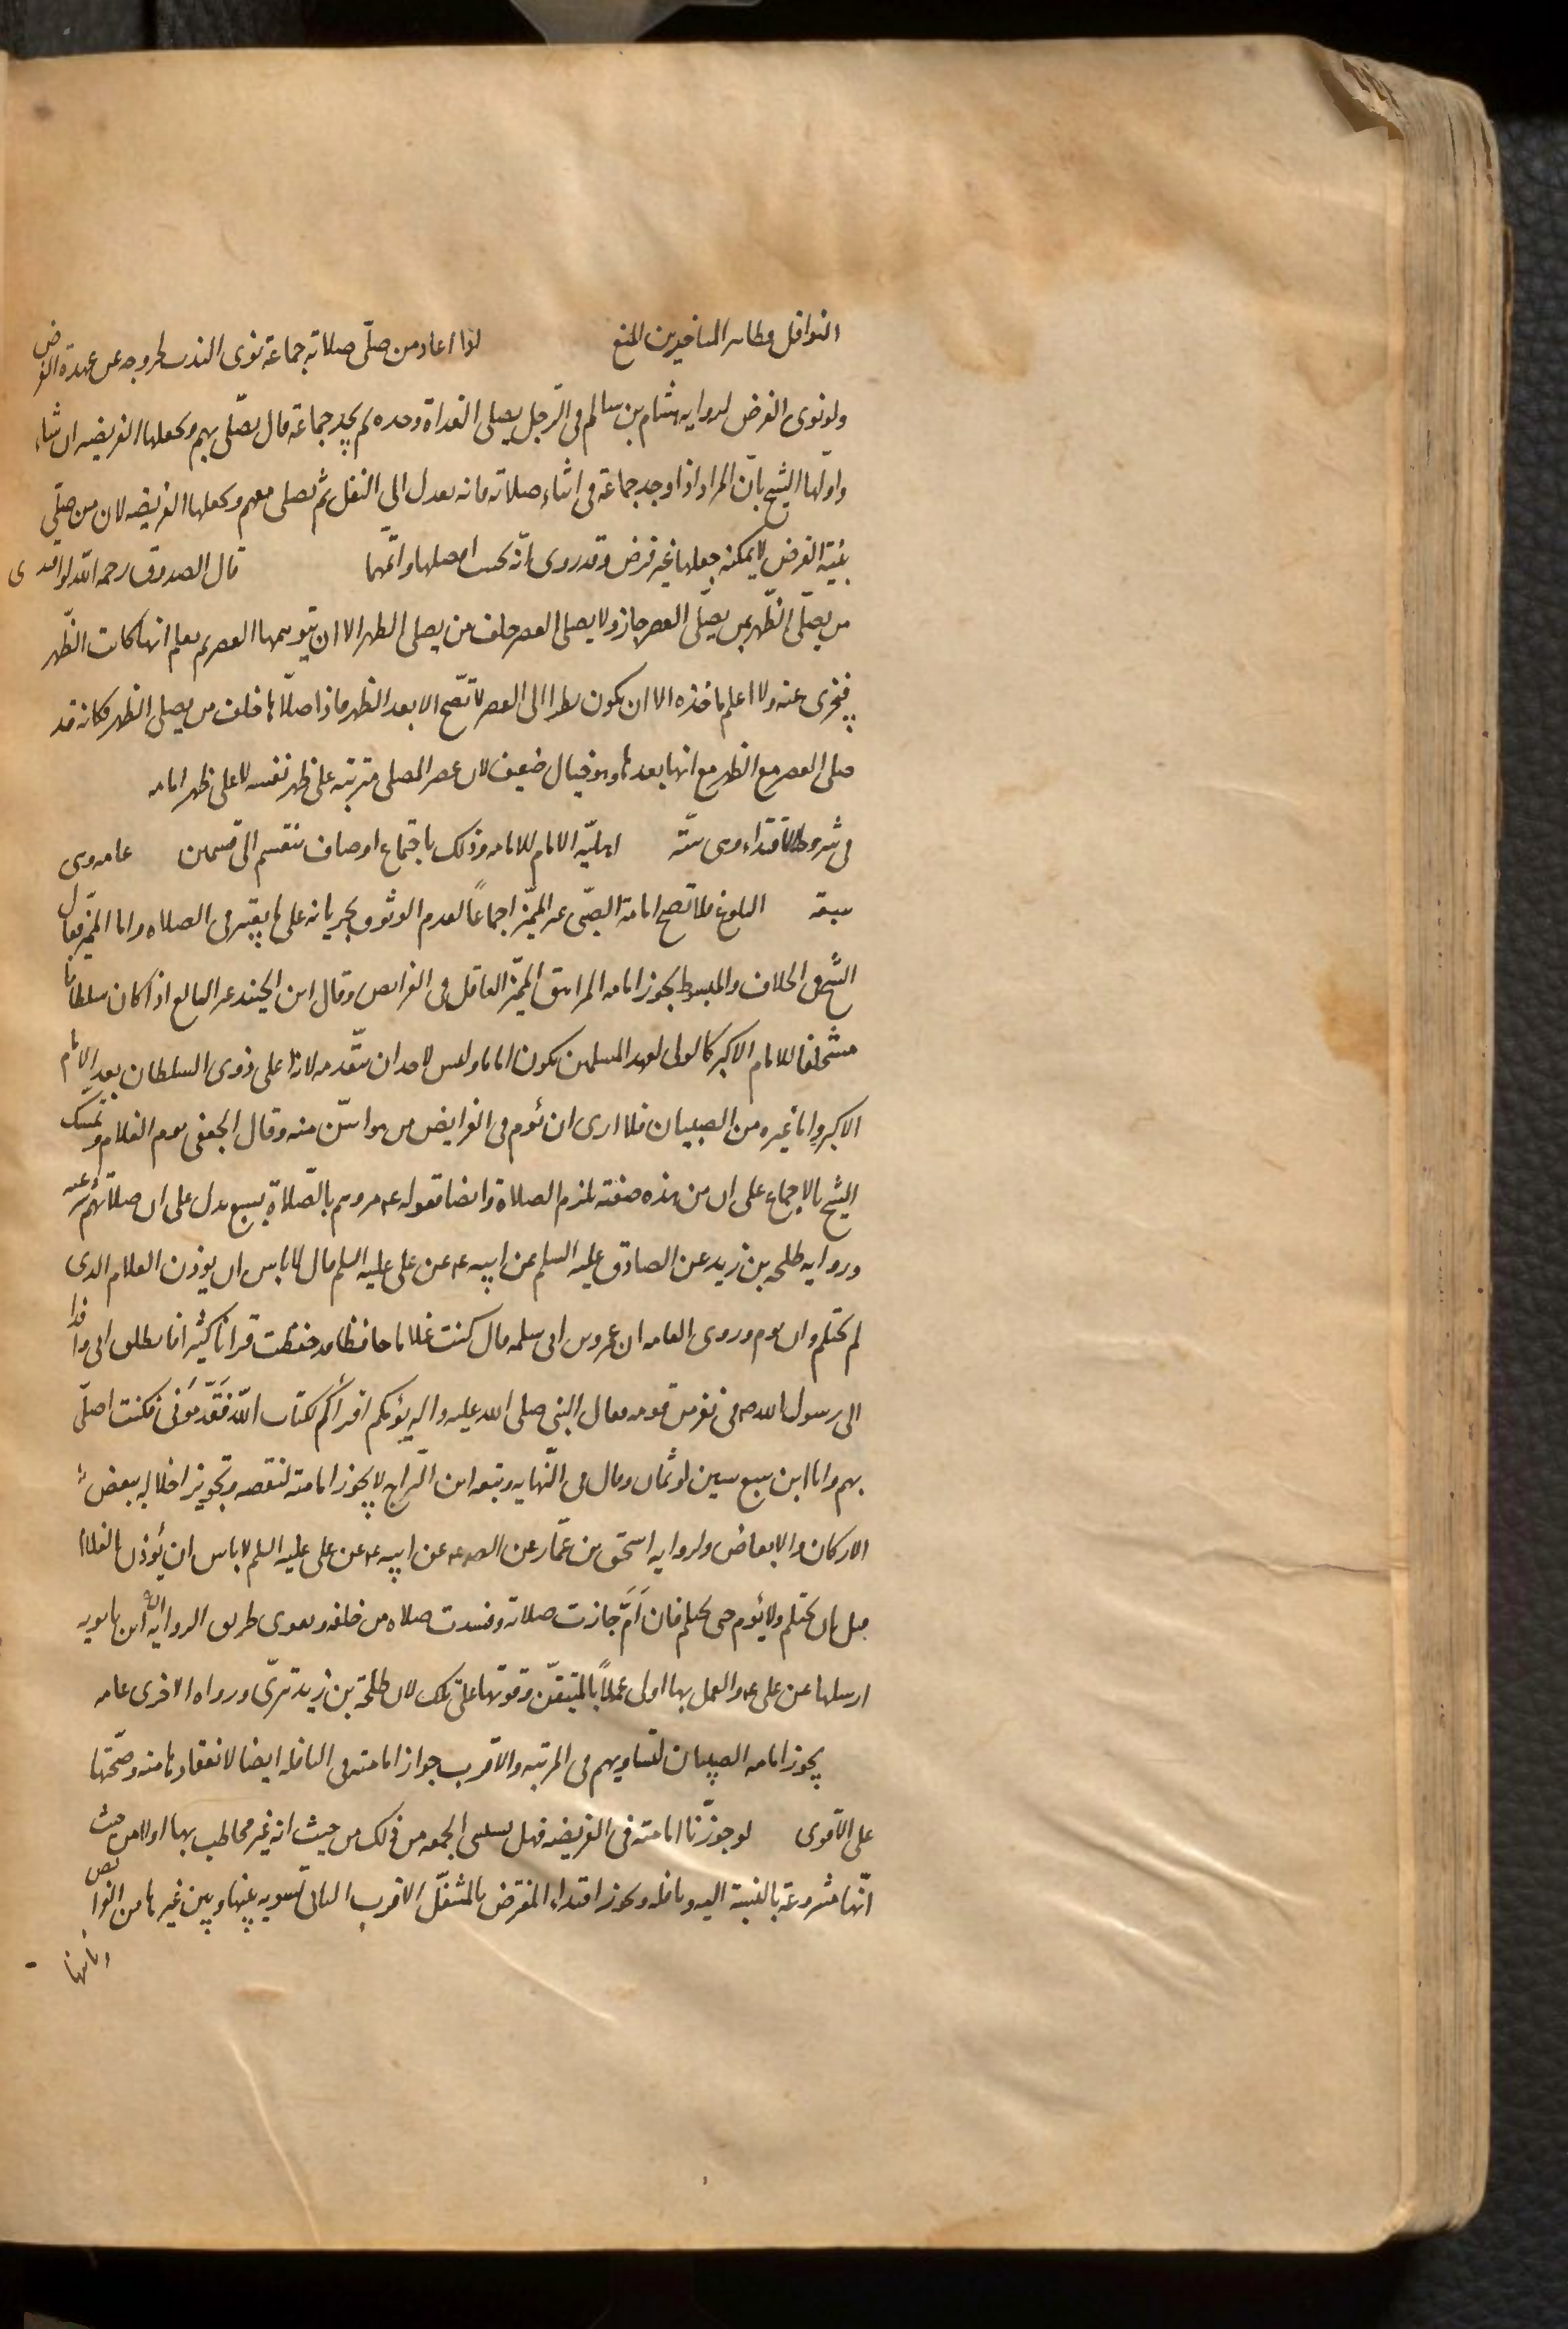 النوافل وظاهر المتاخرين المنع لو اعاد من صلّى صلاته جماعة نوى الندب لخروجه عن عهدة الفرض
ولو نوى الفرض لروايه هشام بن سالم فى الرّجل يصلى الغداة وحده ثم يجد جماعة قال يصلّى بهم ويجعلها الفريضه ان شاء
واولها الشيخ بانّ المراد اذا وجد جماعة فى اثناء صلاته فانه يعدل الى النفل ثم يصلى معهم ويجعلها الفريضه لان من صلّى
بنيّة الفرض لا يمكنه جعلها غير فرض وقد روى انّه يحسب افضلها واتمّها قال الصدوق رحمه الله لو اقتدى
من يصلّى الظّهر بمن يصلّى العصر جاز ولا يصلى العصر خلف من يصلى الظهر الا ان يتوهمها العصر ثم يعلم انها كانت الظّهر
فيجزى عنه ولا اعلم ماخذه الا ان يكون نظرا الى العصر لا تصّح الا بعد الظهر فاذا صلّاها خلف من يصلى الظهر فكانه قد
صلى العصر مع الظهر مع انها بعدها وهو خيال ضعيف لان عصر المصلى مترتبه على ظهر نفسه لا على ظهر امامه
فى شروط الاقتداء وهى ستّة اهليّه الامام للامامه وذلك باجتماع اوصاف تنقسم الى قسمين عامه وهى
سبعة البلوغ فلا تصح امامة الصبّى غير المميّز اجماعاً لعدم الوثوق بجريانه على ما يعتبر فى الصلاه واما المميّز فقال
الشيخ فى الخلاف والمبسوط يجوز امامه المراهق المميّز العاقل فى الفرائص وقال ابن الجنيد غير البالغ اذا كان سلطانا
مستخلفا للامام الاكبر كالولى لعهد المسلمين يكون اماما وليس لاحد ان يتقّدمه لانه اعلى ذوى السلطان بعد الامام
الاكبر واما غيره من الصبيان فلا ارى ان يؤم فى الفرايض من هو اسّن منه وقال الجعفى يؤم الغلام وتمسك
الشيخ بالاجماع على ان من هذه صفته تلزم الصلاة وايضا قوله ع مروهم بالصّلاة لسبع يدل على ان صلاتهم شرعيه
وروايه طلحه بن زيد عن الصادق عليه السلم عن ابيه ع عن على عليه السلم قال لا باس ان يوذن الغلام الذى
لم يحتلم وان يوم وروى العامه ان عمرو بن ابى سلمه قال كنت غلاما حافظا قد حفظت قرانا كثيرا فانطلق ابى وافدا
الى رسول الله ص فى نفر من قومه فقال النبى صلى الله عليه واله يؤمكم اقرأكم لكتاب اللّه فَقَدَّمُونى فكنت اصلّى
بهم وانا ابن سبع سنين او ثمان وقال فى النّهايه وتبعه ابن البّراج لا يجوز امامته لنقصه وتجويز اخلاله ببعض
الاركان والابعاض ولروايه اسحق بن عمّار عن الص ع عن ابيه ع عن على عليه السلم لا باس ان يؤذن الغلام
قبل ان يحتلم ولا يؤم حتى يحتلم فان اَمَّ جازت صلاته وفسدت صلاه من خلفه ويقوى طريق الروايه ان ابن بابويه
ارسلها عن على ع والعمل بها اولى عملاً بالمتيقّن وقوتها على تلك لان طلحة بن زيد بترىّ ورواه الاخرى عامه
يجوز امامه الصبيان لتساويهم فى المرتبه والاقرب جواز امامته فى النافله ايضا لانعقادها منه وصحّتها
على الاقوى لو جوزّنا امامته فى الفريضه فهل يستثنى الجمعه من ذلك من حيث انه غير مخاطب بها اولا من حيث
انّها مشروعة بالنسبة اليه ونافله ويجوز اقتداء المفترض بالمتنفّل الاقرب الثانى تسويه بينها وبين غيرها من الفرائص
امانها